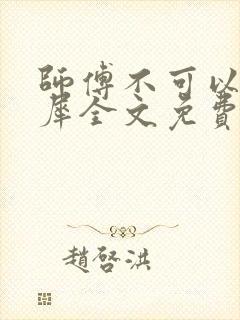 師傅不可以
犀全文免費
趙啓洪